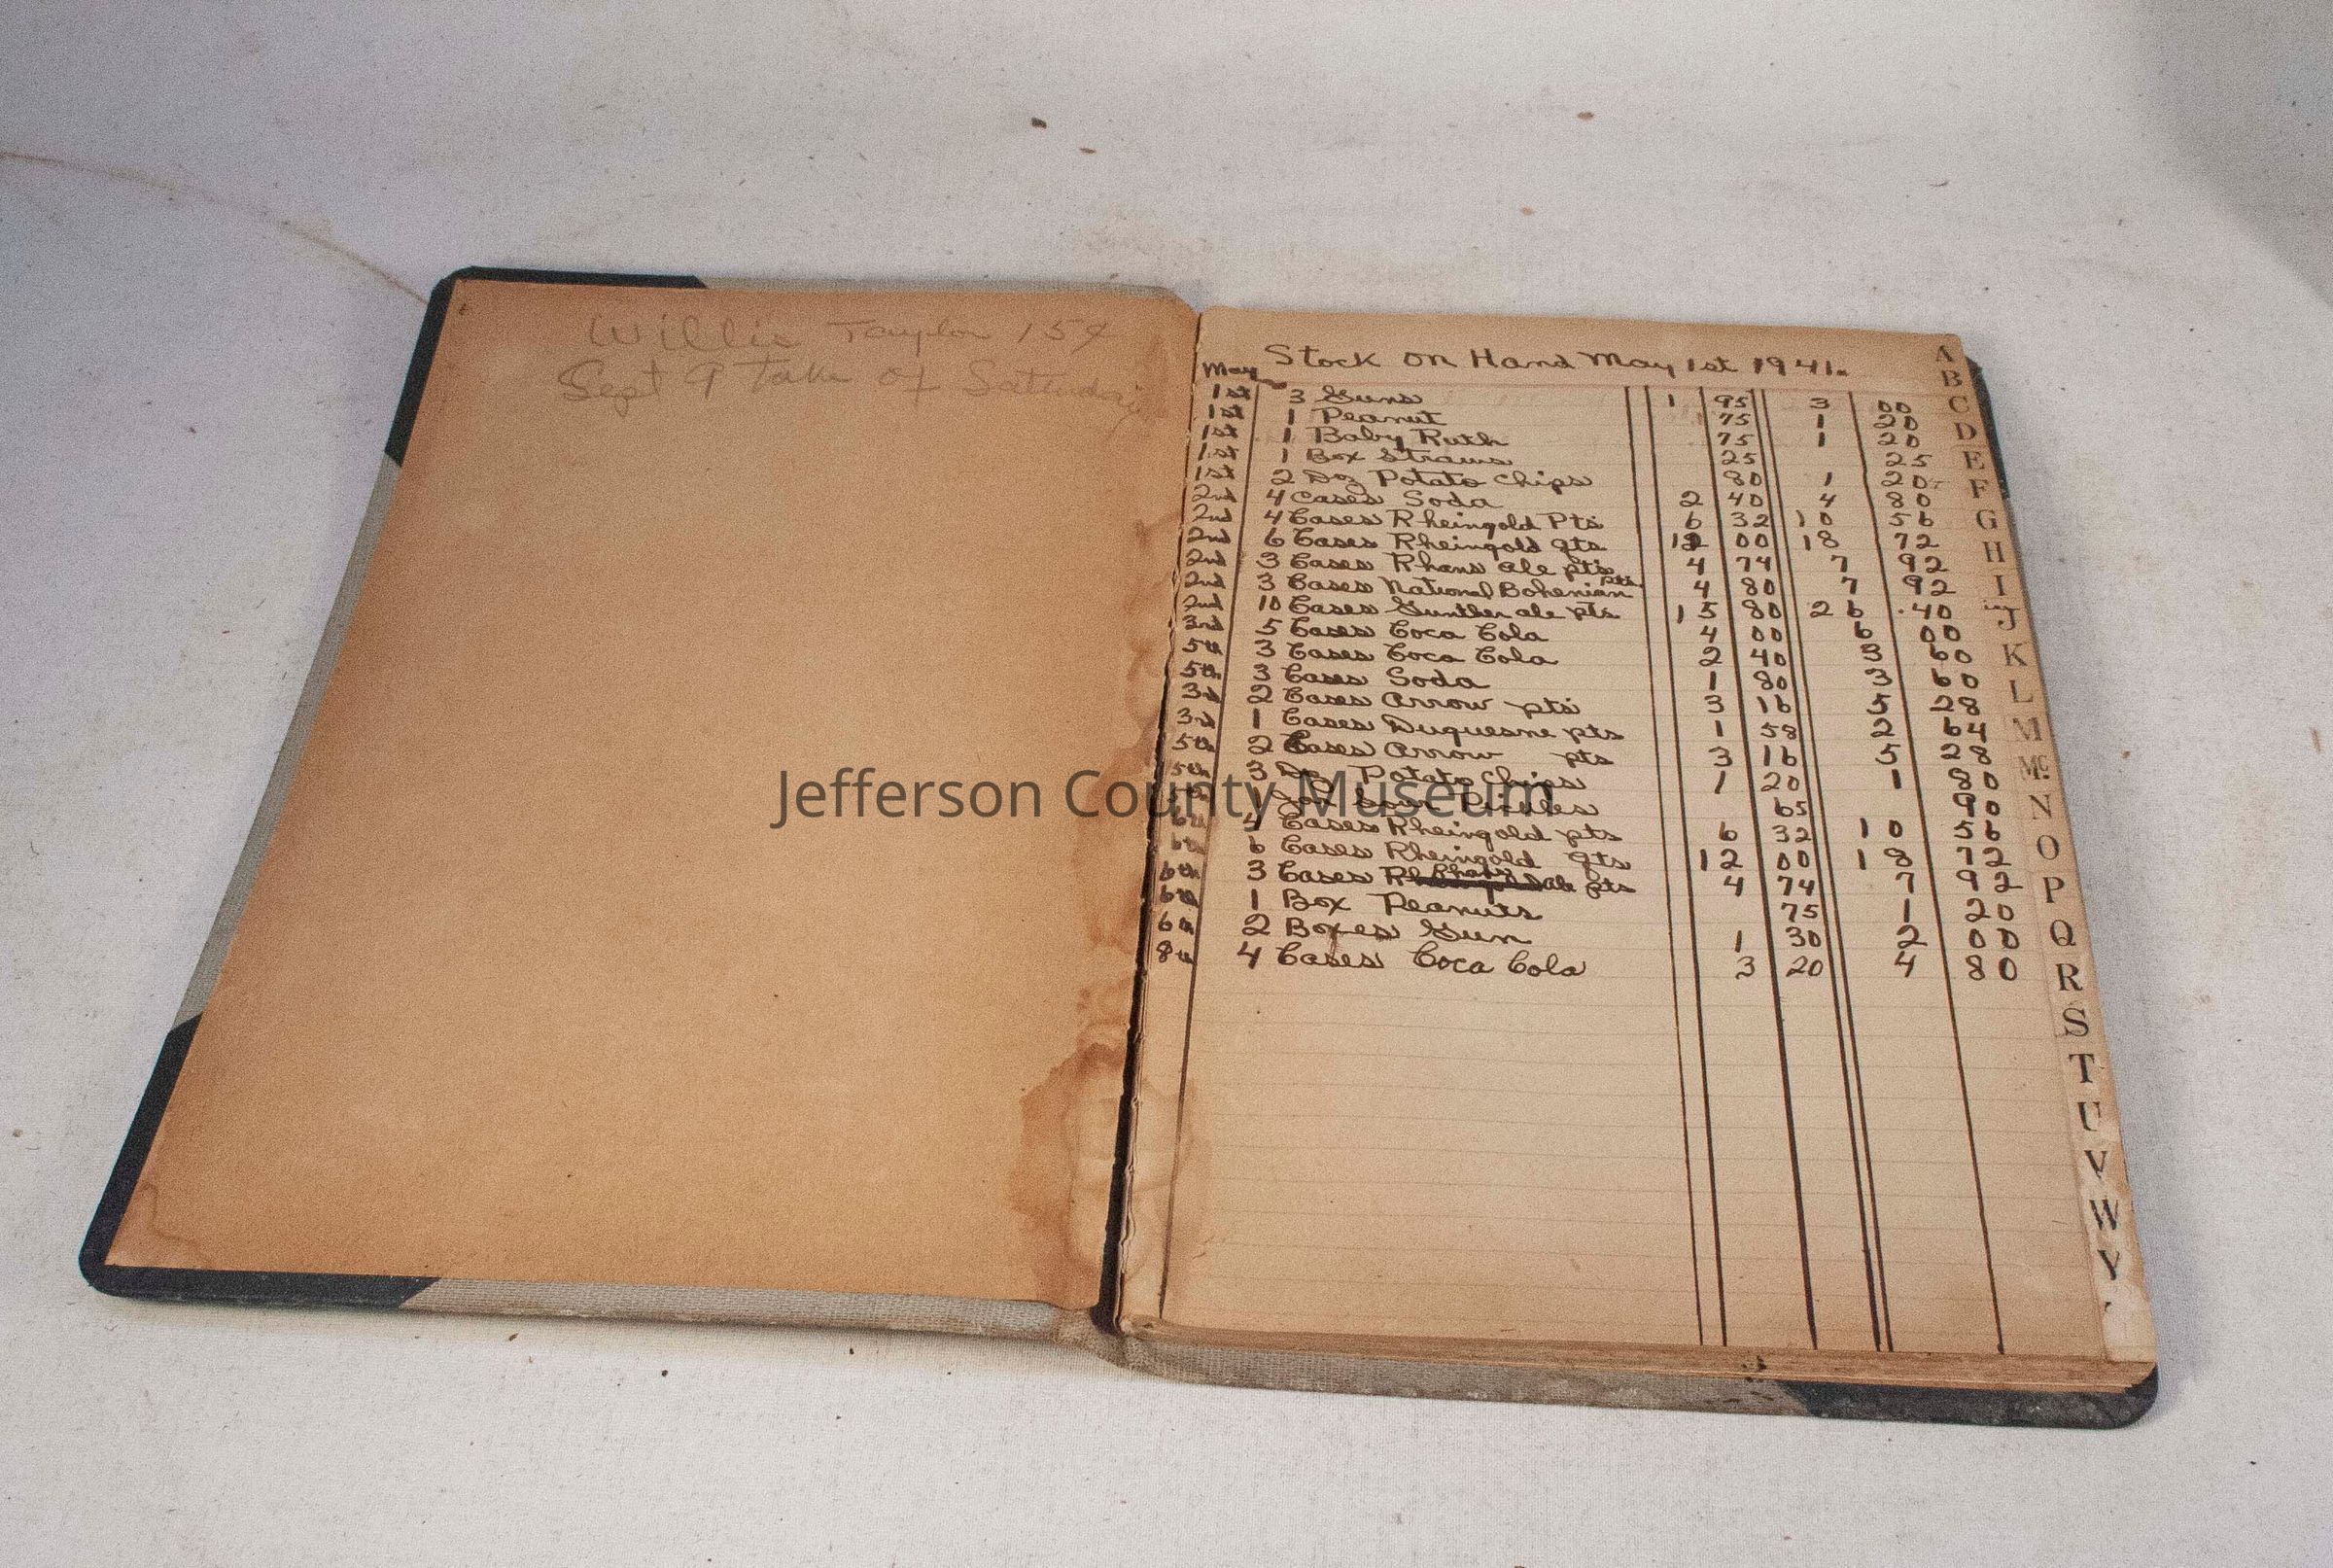 Willis Taylor 15¢
Sept 9 Take of Saturday
Stock on Hand May 1st 1941.
May
1st 3 Guns 1 95 3 00
1st 1 Peanut 75 1 20
1st 1 Baby Ruth 75 1 20
1st 1 Box Straws 25 25
1st 2 Doz Potato Chips 80 1 20
2nd 4 Cases Soda 2 40 4 80
2nd 4 Cases Rheingold Pts 6 32 10 56
2nd 6 Cases Rheingold qts 12 00 18 72
2nd 3 Cases Rhans ale pts 4 74 7 92
2nd 3 Cases National Bohenian pts. 4 80 7 92
2nd 10 Cases Gunther ale pts 15 80 26 40
3rd 5 Cases Coca Cola 4 00 6 00
5th 3 Cases Coca Cola 2 40 3 60
5th 3 Cases Soda 1 80 3 60
3rd 2 Cases Arrow pts 3 16 5 28
3rd 1 Cases Duquesne pts 1 58 2 64
5th 2 Cases Arrow pts 3 16 5 28
5th 3 Dz Potato Chips 1 20 1 80
Sour Pickles 65 90
6th 4 Cases Rheingold pts 6 32 10 56
6th 6 Cases Rheingold qts 12 00 18 72
6th 3 Cases Rhans ale pts 4 74 7 92
6th 1 Box Peanuts 75 1 20
6th 2 Boxes Gun 1 30 2 00
8th 4 Cases Coca Cola 3 20 4 80
A
B
C
D
E
F
G
H
I
J
K
L
M
Mc
N
O
P
Q
R
S
T
U
V
W
Y
Jefferson County Museum